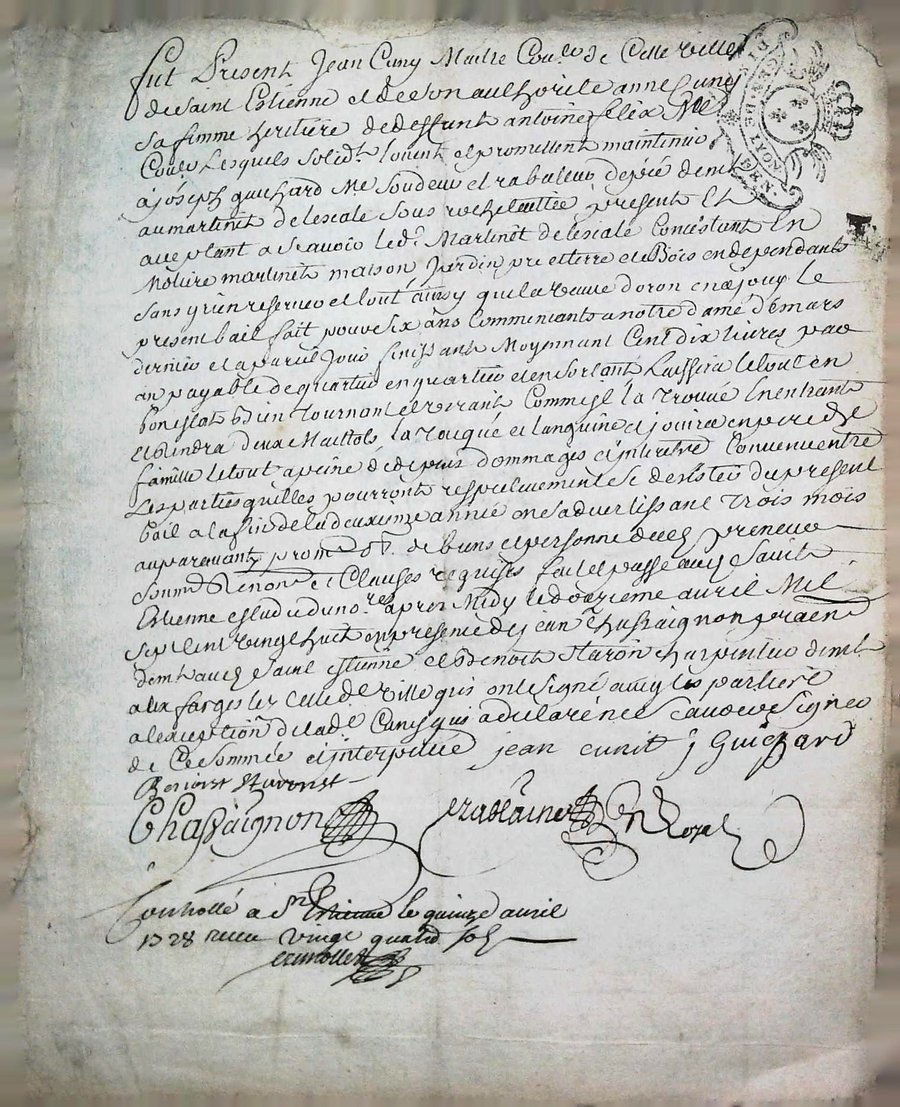 fut Present Jean Cuny Maitre Coul.r de Cette ville
de Saint Estienne et de son authorité anne Cuny
sa femme heritiere de deffunt antoine felix Me
Coul.r Lesquels solid.t louent et promettent maintenir
a joseph guichard Me soudeur et rabaleur depié dem.t
au martinet de lescale sous rochetaillée present Et
aceptant a scavoir led.t Martinet de lescale Concistant En
maison Jardin pre et terre et Bois en dependants
sans y rien reserver et tout ainsy que la veuve doron en a jouy le
present bail fait pour six ans Commencants a notre dame de mars
dernier et a pareil jour finissant Moyennant Cent dix livres par
an payable de quartier en quartier et en sortant Laissera le tout en
bon estat et un tournant et virant Comme il la trouvé En entrant
et rendra deux la et languine et jouira en pere de
famille le tout a peine de depens dommages et interets Convenu entre
Les parties quilles pourront respectivement se desister du present
bail a la fin de la deuxieme année en s advertissant Trois mois
auparavant de biens et personne dud. preneur
soum. Renon. et Clauses requises fait et passé aud. Saint
Estienne estude du no.re apres Midy le douzieme avril Mil
sept cent vingt huit en presence de Jean Chassaignon
dem.t aud. Saint Estienne et Benoit Staron charpentier dem.t
aux farges les cette d. ville qui ont signé avec les parties
a lexception de lad. Cuny qui a declaré ne scavoir signer
de Ce sommée et interpellée jean cunit j Guichard
Benoist Staront
Chassaignon
Controllé a St Estienne le quinze avril
1728 receu vingt quatre sols
GEN. DE LYON